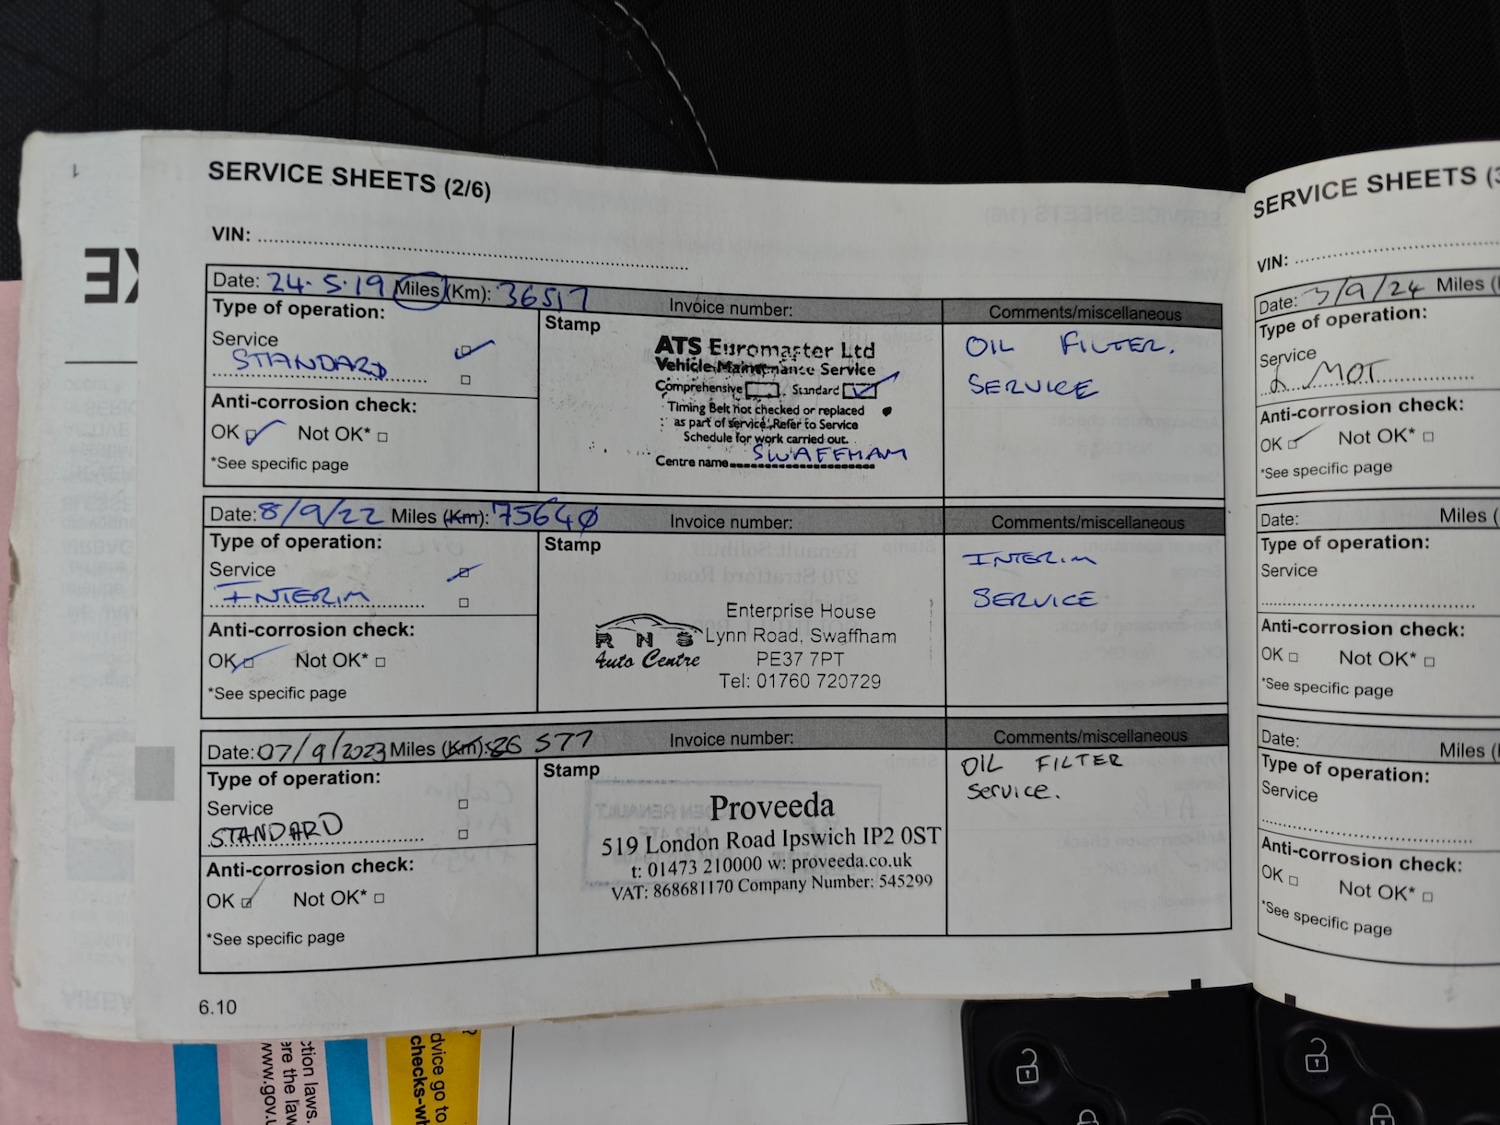 SERVICE SHEETS (2/6)
VIN:
Date: 24.5.19 Miles (Km): 36517 Invoice number: Comments/miscellaneous
Type of operation:
Service
STANDARD
Anti-corrosion check:
OK Not OK*
*See specific page
Stamp
ATS Euromaster Ltd
Vehicle Maintenance Service
Comprehensive Standard
Timing Belt not checked or replaced
as part of service, Refer to Service
Schedule for work carried out.
Centre name SWAFFHAM
OIL FILTER.
SERVICE
Date: 8/9/22 Miles (Km): 75640 Invoice number: Comments/miscellaneous
Type of operation:
Service
INTERIM
Anti-corrosion check:
OK Not OK*
*See specific page
Stamp
RNS
Auto Centre
Enterprise House
Lynn Road, Swaffham
PE37 7PT
Tel: 01760 720729
INTERIM
SERVICE
Date: 07/9/2023 Miles (Km): 86 577 Invoice number: Comments/miscellaneous
Type of operation:
Service
STANDARD
Anti-corrosion check:
OK Not OK*
*See specific page
Stamp
Proveeda
519 London Road Ipswich IP2 0ST
t: 01473 210000 w: proveeda.co.uk
VAT: 868681170 Company Number: 545299
OIL FILTER
Service.
6.10
SERVICE SHEETS (3
VIN:
Date: 3/9/24 Miles (
Type of operation:
Service
& MOT
Anti-corrosion check:
OK Not OK*
*See specific page
Date: Miles (
Type of operation:
Service
Anti-corrosion check:
OK Not OK*
*See specific page
Date: Miles (
Type of operation:
Service
Anti-corrosion check:
OK Not OK*
*See specific page
ction laws.
ere the law
www.gov.u
dvice go to
checks-wh